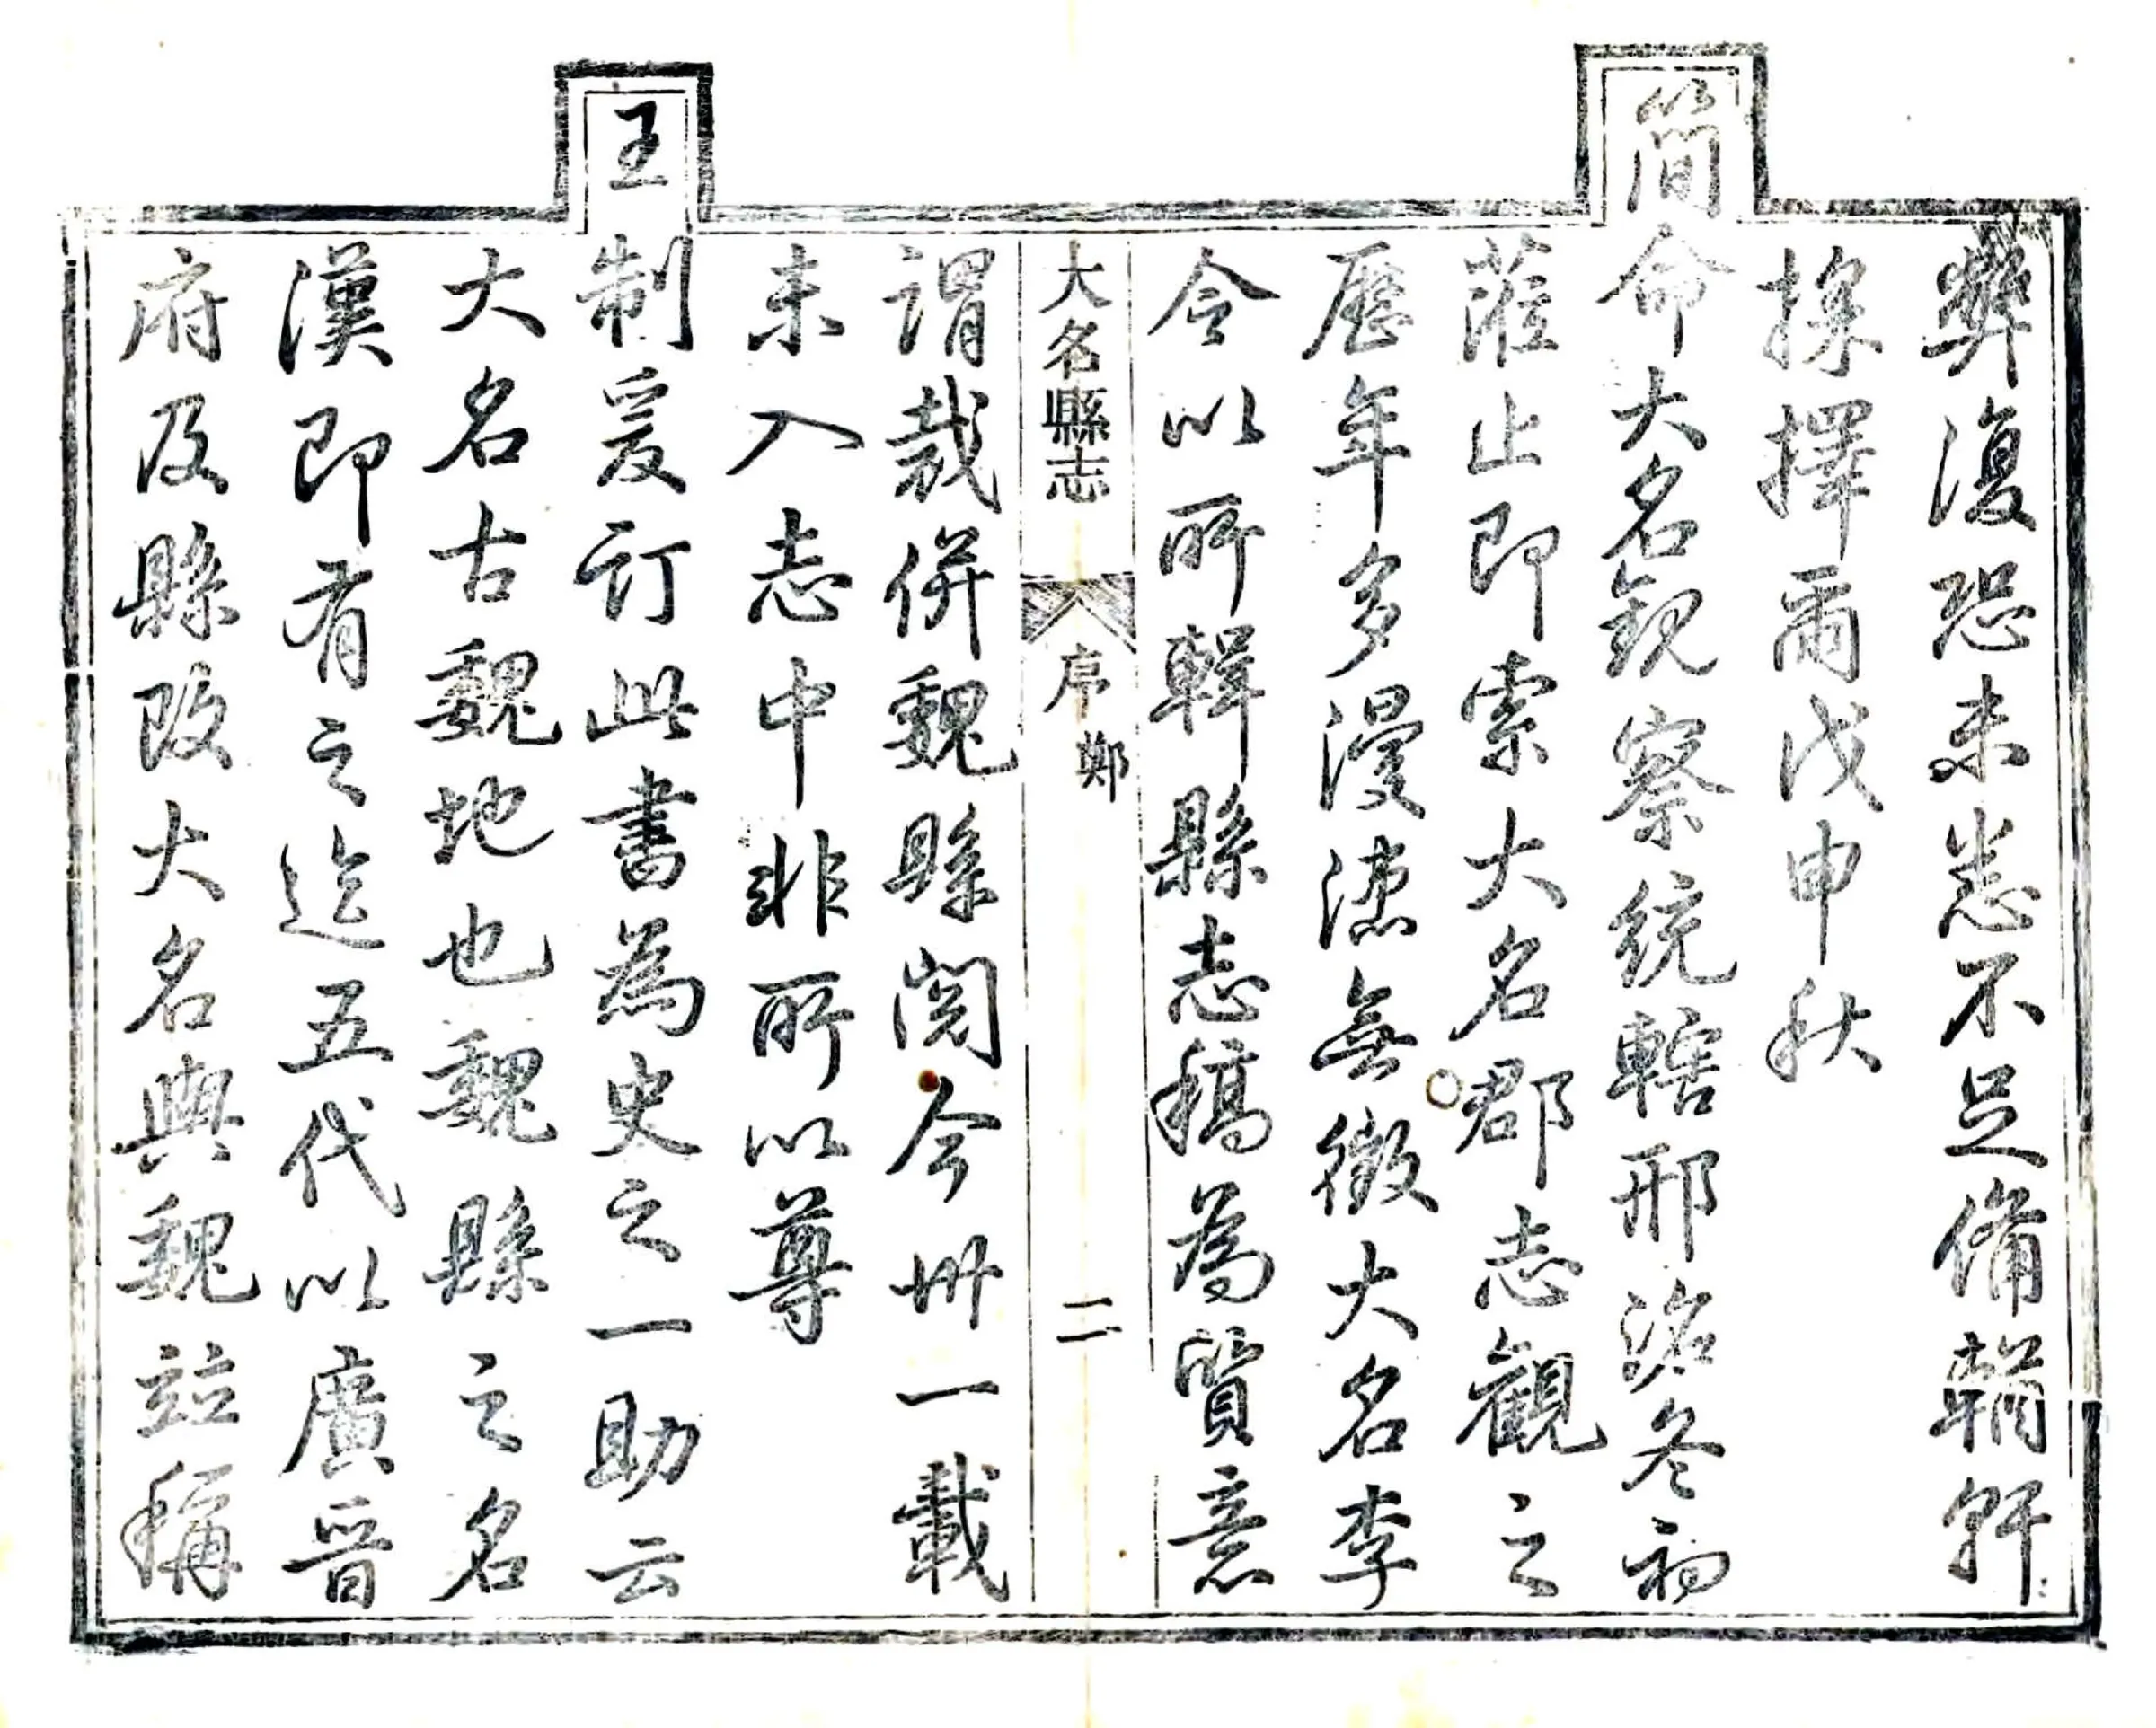 弊復恐未悉不足備輶軒
採擇爾戊申秋
簡命大名觀察統轄邢洺冬初
蒞止即索大名郡志觀之
歷年多漫漶無徵大名李
令以所輯縣志稿為質意
大名縣志 序 鄭 二
謂裁併魏縣閱今卅一載
未入志中非所以尊
王制爰訂此書為史之一助云
大名古魏地也魏縣之名
漢即有之迄五代以廣晉
府及縣改大名與魏竝稱